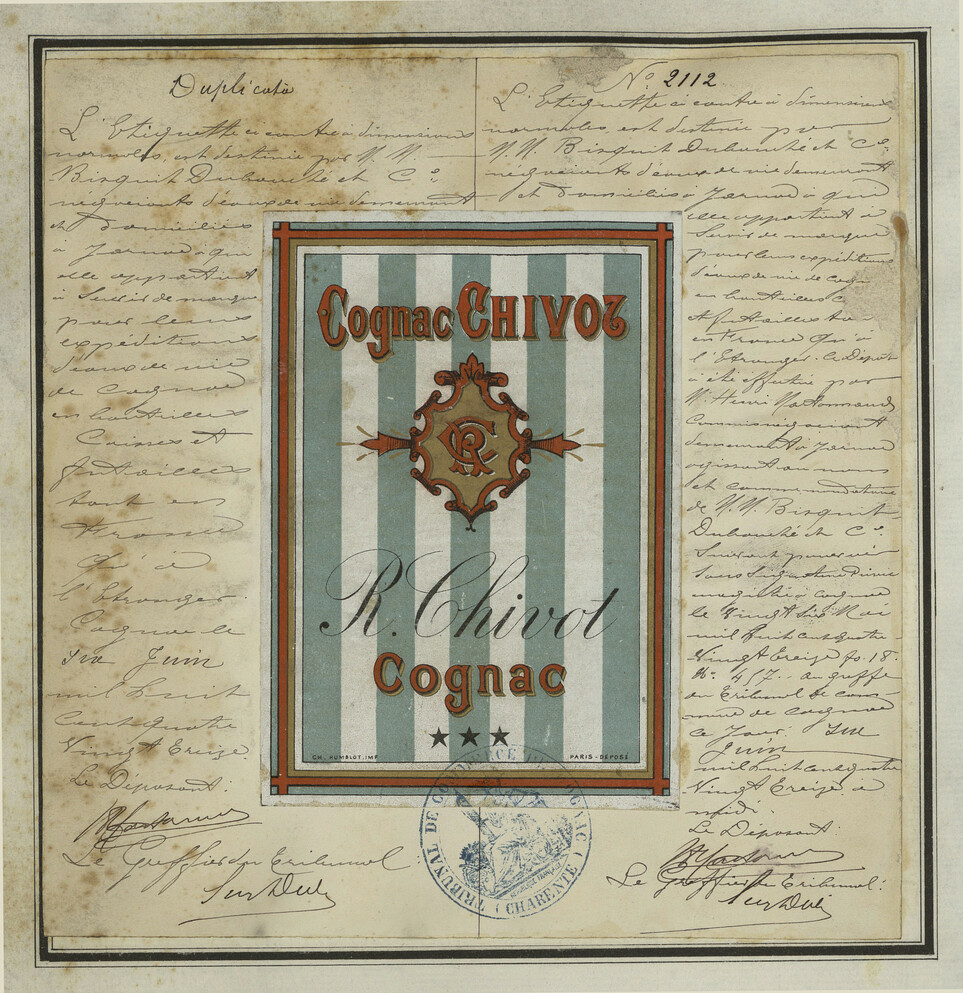 Duplicata
L'Etiquette ci contre à dimensions
normales, est destinée par M.M.
Bisquit Dubouché et Cº.
négociants d'eaux de vie demeurant
et domiciliés
à Jarnac à qui
elle appartient
à servir de marque
pour leurs
expéditions
d'eaux de vie
de Cognac
en bouteilles
Caisses et
futailles
tant en
France
qu'à
l'Etranger.
Cognac le
Juin
mil huit
cent quatre
Vingt treize
Le Déposant:
Le Greffier du Tribunal:
Nº 2112
L'Etiquette ci contre à dimensions
normales, est destinée par
M.M. Bisquit Dubouché et Cº.
négociants d'eaux de vie demeurant
et domiciliés à Jarnac à qui
elle appartient à
servir de marque
pour leurs expéditions
d'eaux de vie de
en bouteilles
et futailles
en France qu'à
l'Etranger. Le Dépôt
a été effectué par
M. Henri
demeurant à Jarnac
agissant au nom
et comme mandataire
de M.M. Bisquit
Dubouché et Cº.
Suivant pouvoir
sous signature privée
enregistré à Cognac
le vingt six Mai
mil huit cent quatre
Vingt treize fo. 18.
au greffe
du Tribunal de com-
merce de Cognac
ce jour
Juin
mil huit cent quatre
Vingt treize à
midi.
Le Déposant:
Le Greffier du Tribunal:
Cognac CHIVOT
RC
R. Chivot
Cognac
★★★
CH. HUMBLOT, IMP.
PARIS-DÉPOSÉ
TRIBUNAL DE COMMERCE DE COGNAC
(CHARENTE)